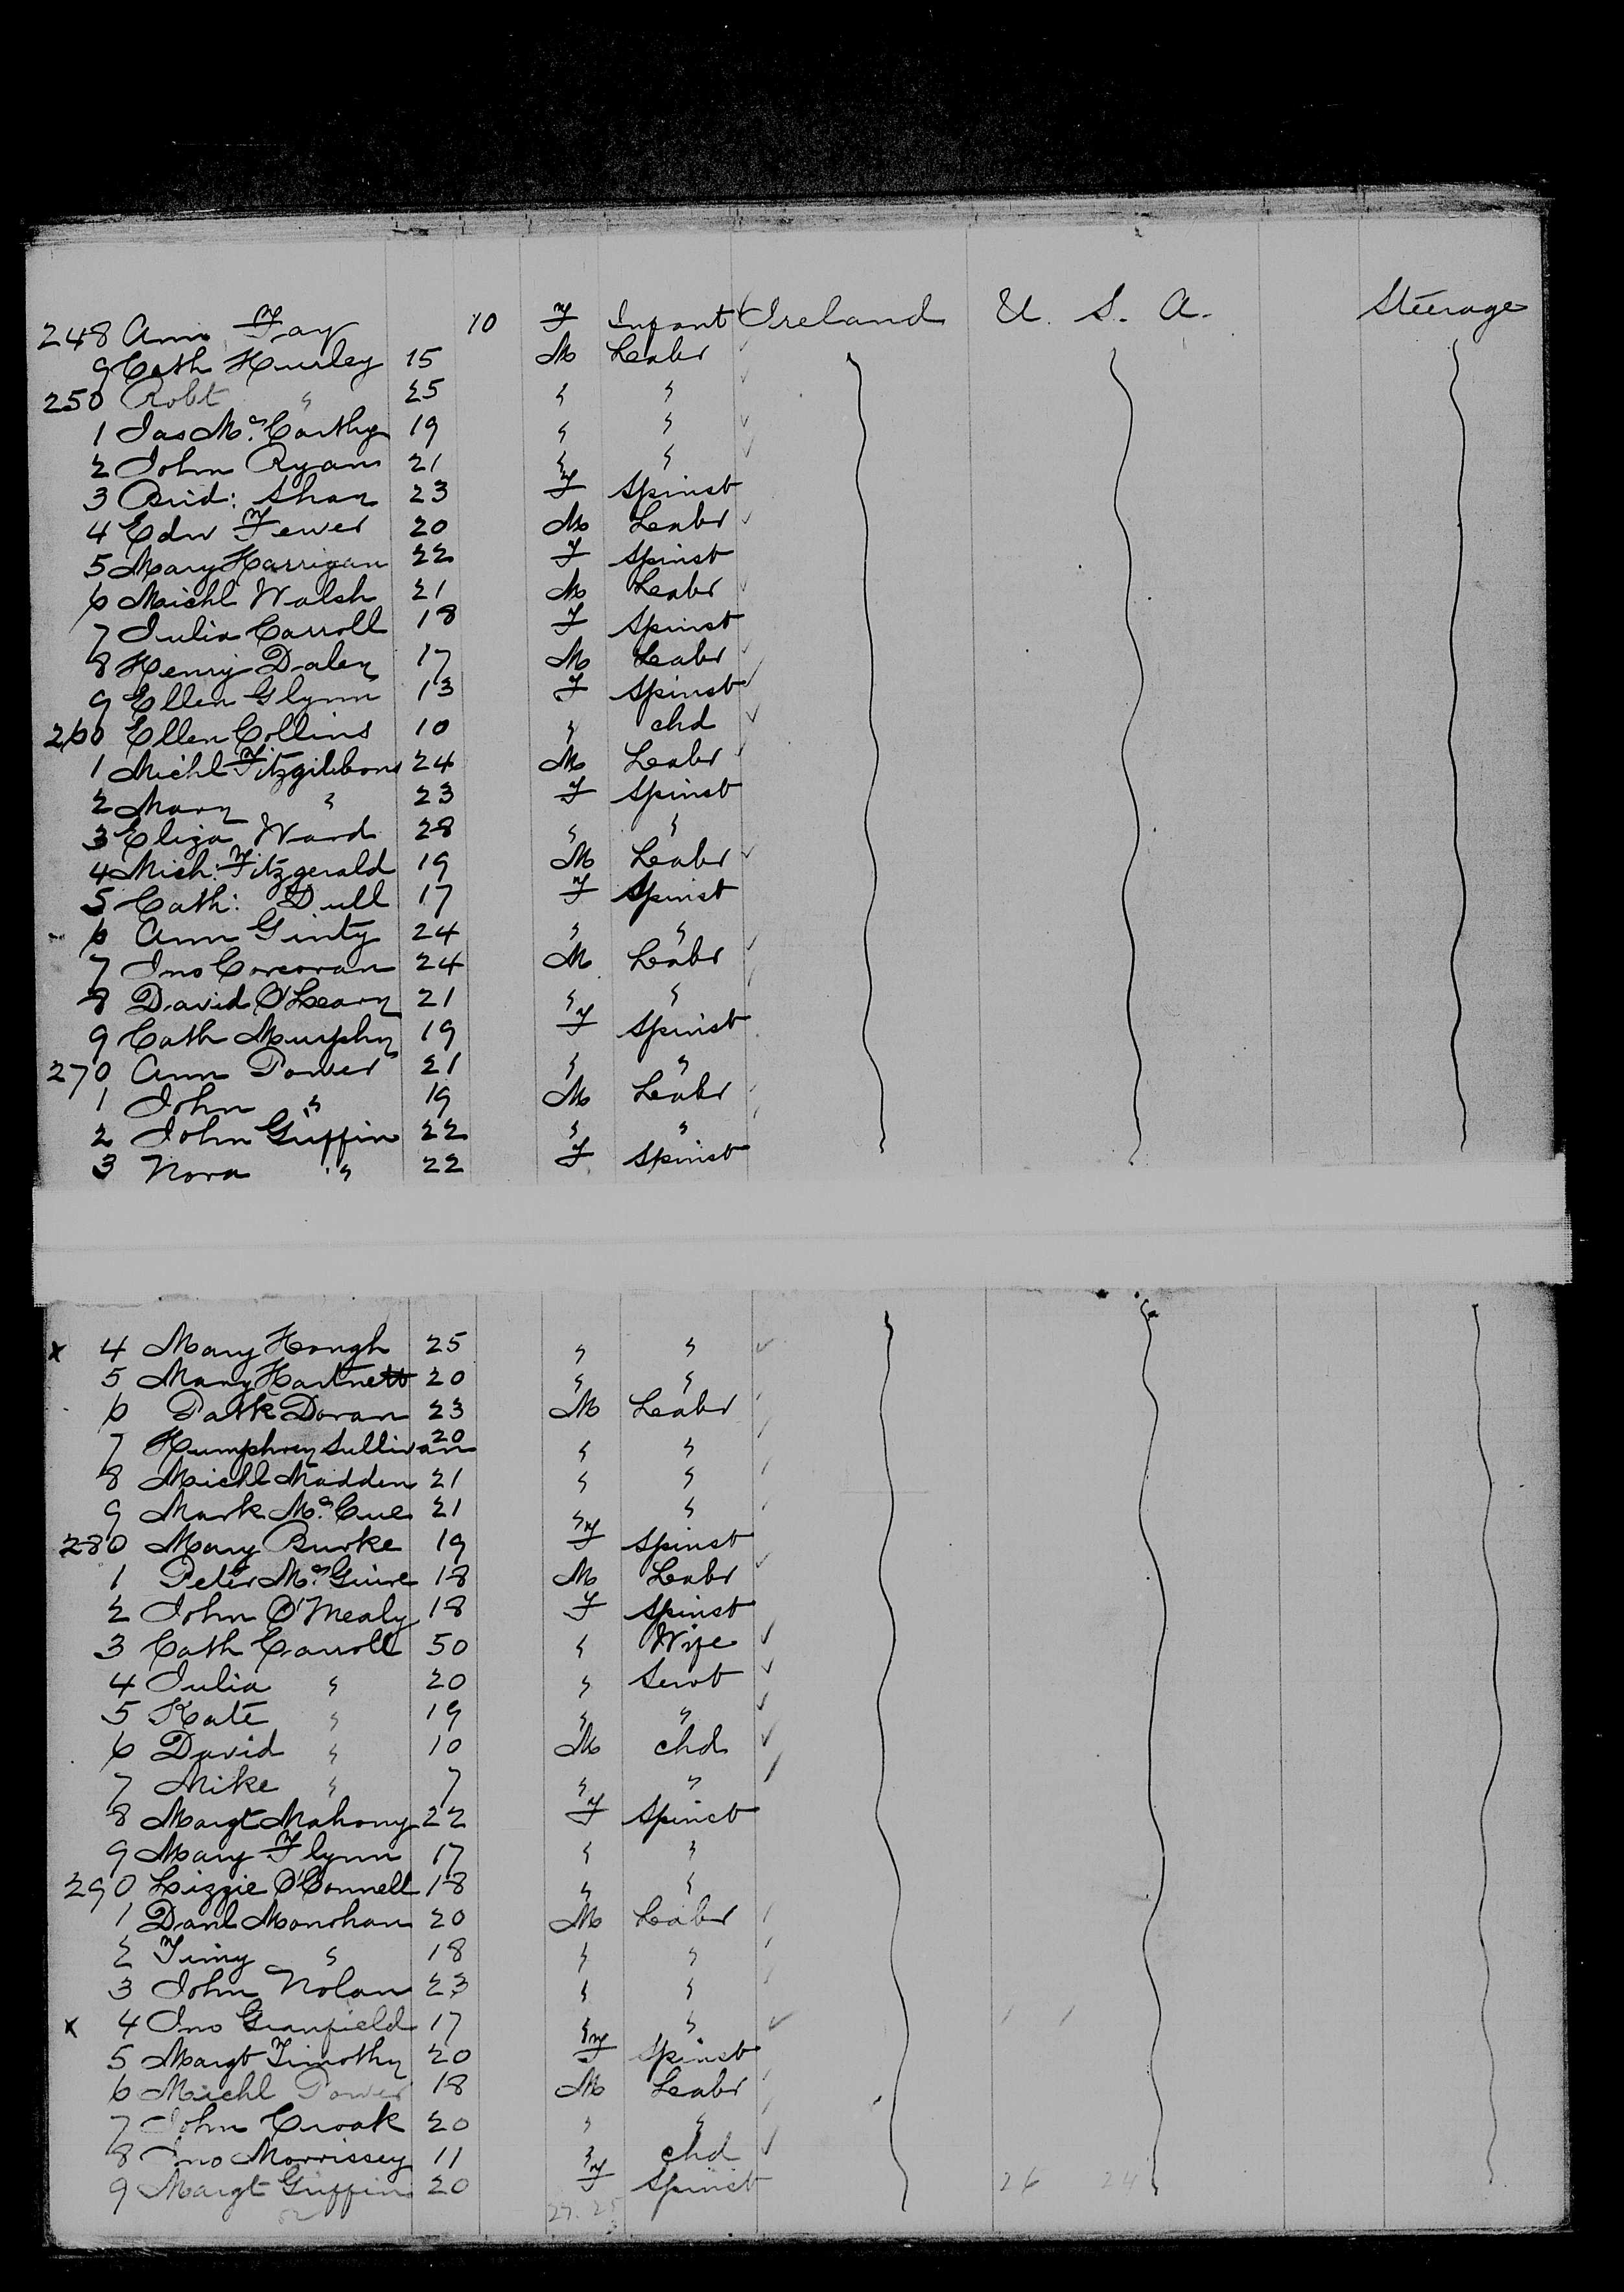 248 Ann Fay 10 F Infant Ireland U. S. A. Steerage
9 Cath Hurley 15 M Labr
250 Robt " 25 " "
1 Jas McCarthy 19 " "
2 John Ryan 21 " "
3 Brid: Shay 23 F Spinst
4 Edw Fewer 20 M Labr
5 Mary Harrigan 22 F Spinst
6 Michl Walsh 21 M Labr
7 Julia Carroll 18 F Spinst
8 Henry Daley 17 M Labr
9 Ellen Glynn 13 F Spinst
260 Ellen Collins 10 " chd
1 Michl Fitzgibbons 24 M Labr
2 Mary " 23 F Spinst
3 Eliza Ward 28 " "
4 Mich: Fitzgerald 19 M Labr
5 Cath: Dull 17 F Spinst
6 Ann Ginty 24 " "
7 Jno Corcoran 24 M Labr
8 David O'Leary 21 " "
9 Cath Murphy 19 F Spinst
270 Ann Power 21 " "
1 John " 19 M Labr
2 John Griffin 22 " "
3 Nora " 22 F Spinst
x 4 Mary Hough 25 " "
5 Mary Hartnett 20 " "
6 Patk Doran 23 M Labr
7 Humphrey Sullivan 20 " "
8 Michl Madden 21 " "
9 Mark McCue 21 " "
280 Mary Burke 19 F Spinst
1 Peter McGuire 18 M Labr
2 John O'Mealy 18 F Spinst
3 Cath Carroll 50 " Wife
4 Julia " 20 " Servt
5 Kate " 19 " "
6 David " 10 M chd
7 Mike " 7 " "
8 Margt Mahony 22 F Spinst
9 Mary Flynn 17 " "
290 Lizzie O'Connell 18 " "
1 Danl Monohan 20 M Labr
2 Timy " 18 " "
3 John Nolan 23 " "
x 4 Jno Granfield 17 " "
5 Margt Timothy 20 F Spinst
6 Michl Power 18 M Labr
7 John Croak 20 " "
8 Jno Morrissey 11 " chd
9 Margt Griffin 20 F Spinst
27. 25 26 24